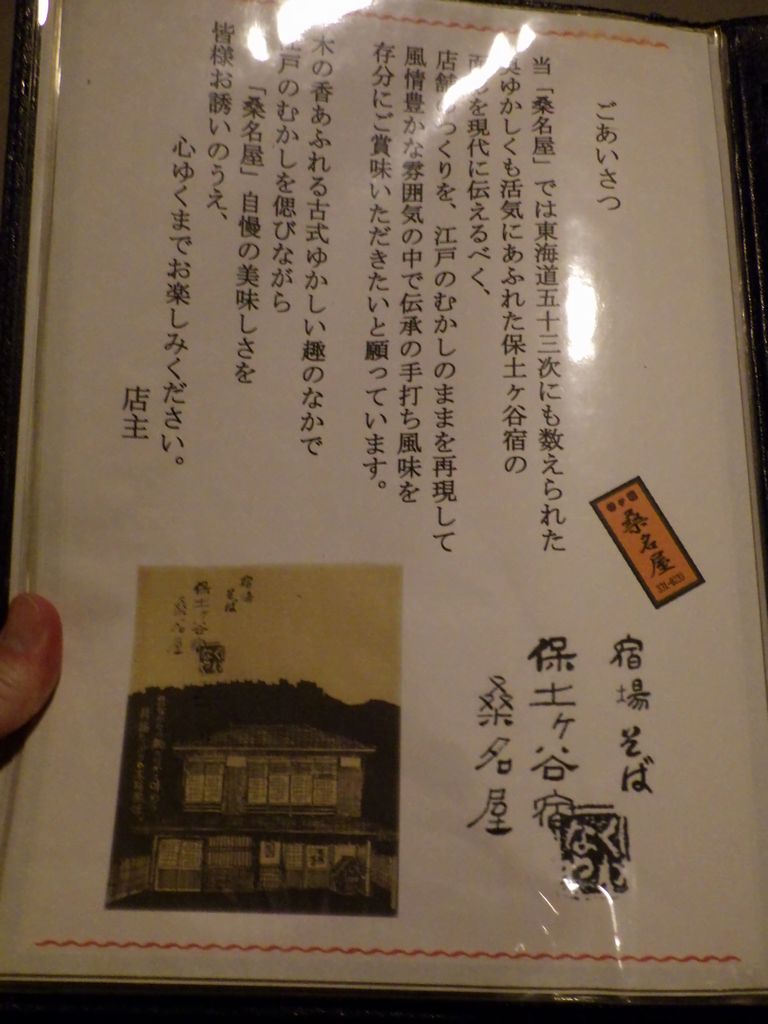 ごあいさつ
当「桑名屋」では東海道五十三次にも数えられた
ゆかしくも活気にあふれた保土ヶ谷宿の
を現代に伝えるべく、
店舗づくりを、江戸のむかしのままを再現して
風情豊かな雰囲気の中で伝承の手打ち風味を
存分にご賞味いただきたいと願っています。
木の香あふれる古式ゆかしい趣のなかで
江戸のむかしを偲びながら
「桑名屋」自慢の美味しさを
皆様お誘いのうえ、
心ゆくまでお楽しみください。
店主
桑名屋
宿場そば
保土ヶ谷宿
桑名屋
宿場そば
保土ヶ谷宿
桑名屋